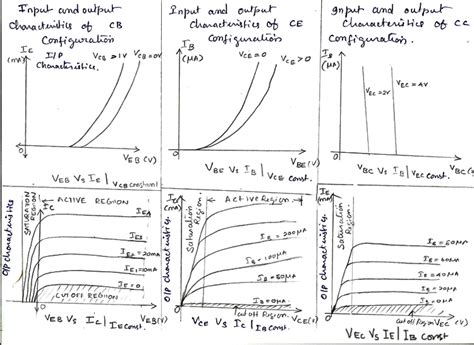 Input and output
Characteristics of CB
Configuration
I/P
Characteristics.
(mA)
VCB>1V
VCB=0V
0
VEB(V)
VEB Vs IE | VCB constant
Input and output
Characteristics of CE
Configuration
IB
(μA)
VCE=0
VCE>0
0
VBE(V)
VBE Vs IB | VCE const.
Input and output
Characteristics of CC
Configuration.
IB
(μA)
VEC=2V
VEC=4V
0
VBC(V)
VBC Vs IB | VEC const.
O/P characteristics
SATURATION
REGION
IC
ACTIVE REGION
IE2=20mA
IE1=10mA
IE=0
CUTOFF REGION
0
VEB(V)
VEB Vs IC | IE const.
O/P characteristics
(mA)
Saturation
Region.
Active Region
IB=200μA
IB=100μA
IB=50μA
IB=0μA
Cutoff Region
0
VCE(V)
VCE Vs IC | IB const.
O/P characteristics
IE
(mA)
Saturation
Region.
IB=60μA
IB=40μA
IB=20μA
IB=0μA
0
Cutoff Region
VEC(V)
VEC Vs IE | IB const